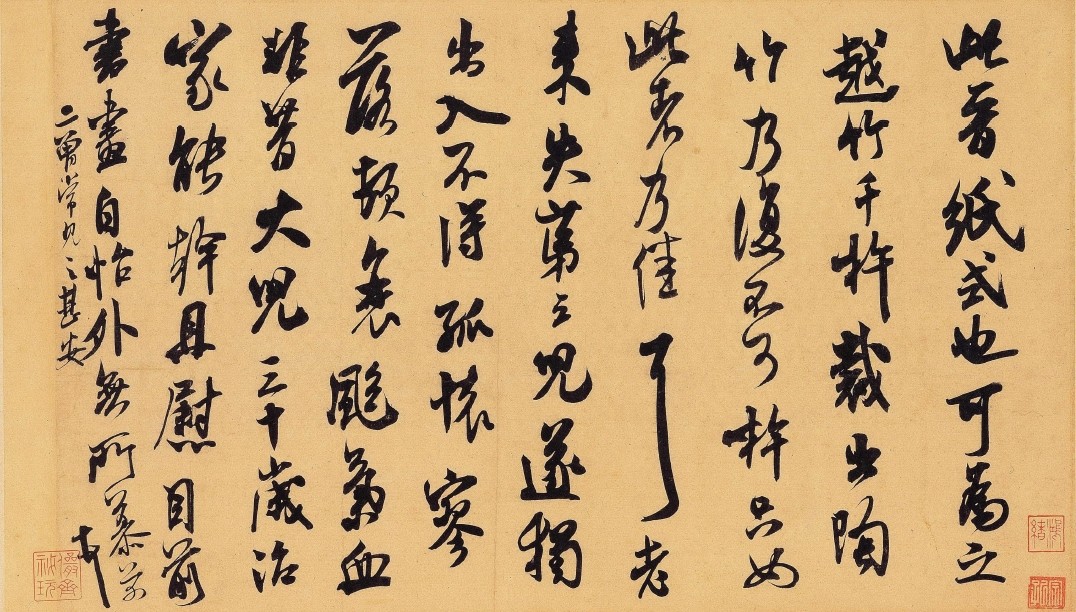 此晉紙式也可為之
越竹千杵裁出陶
竹乃復不可杵只如
此者乃佳耳老
來失第三兒遂獨
出入不得孤懷寥
落頓衰颯氣血
非昔大兒三十歲治
家能幹且慰目前
書畫自怡外無所慕芾
二甥常見之甚安
儼齋秘玩